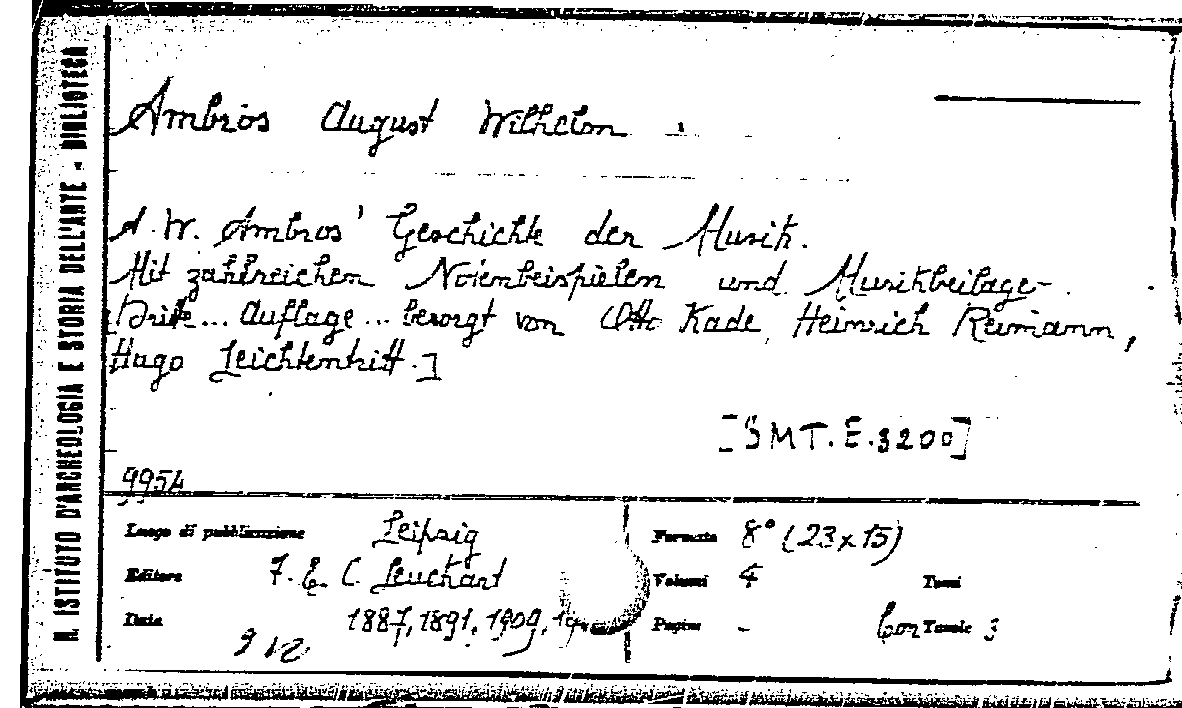 R. ISTITUTO D'ARCHEOLOGIA E STORIA DELL'ARTE - BIBLIOTECA
Ambros August Wilhelm
A. W. Ambros' Geschichte der Musik.
Mit zahlreichen Notenbeispielen und Musikbeilage-.
Dritte... Auflage... besorgt von Otto Kade, Heinrich Reimann,
Hugo Leichtentritt.]
[SMT.E.3200]
9954
Luogo di pubblicazione Leipzig
Formato 8° (23x15)
Editore F. E. C. Leuckart
Volumi 4 Tomi
Data 1887, 1891, 1909, 19
Pagine - Con Tavole 3